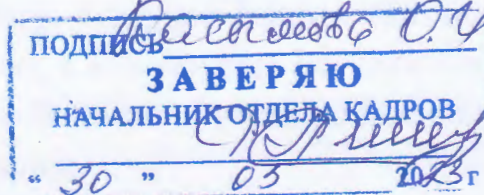 ПОДПИСЬ О.И
ЗАВЕРЯЮ
НАЧАЛЬНИК ОТДЕЛА КАДРОВ
" 30 " 03 2023 г